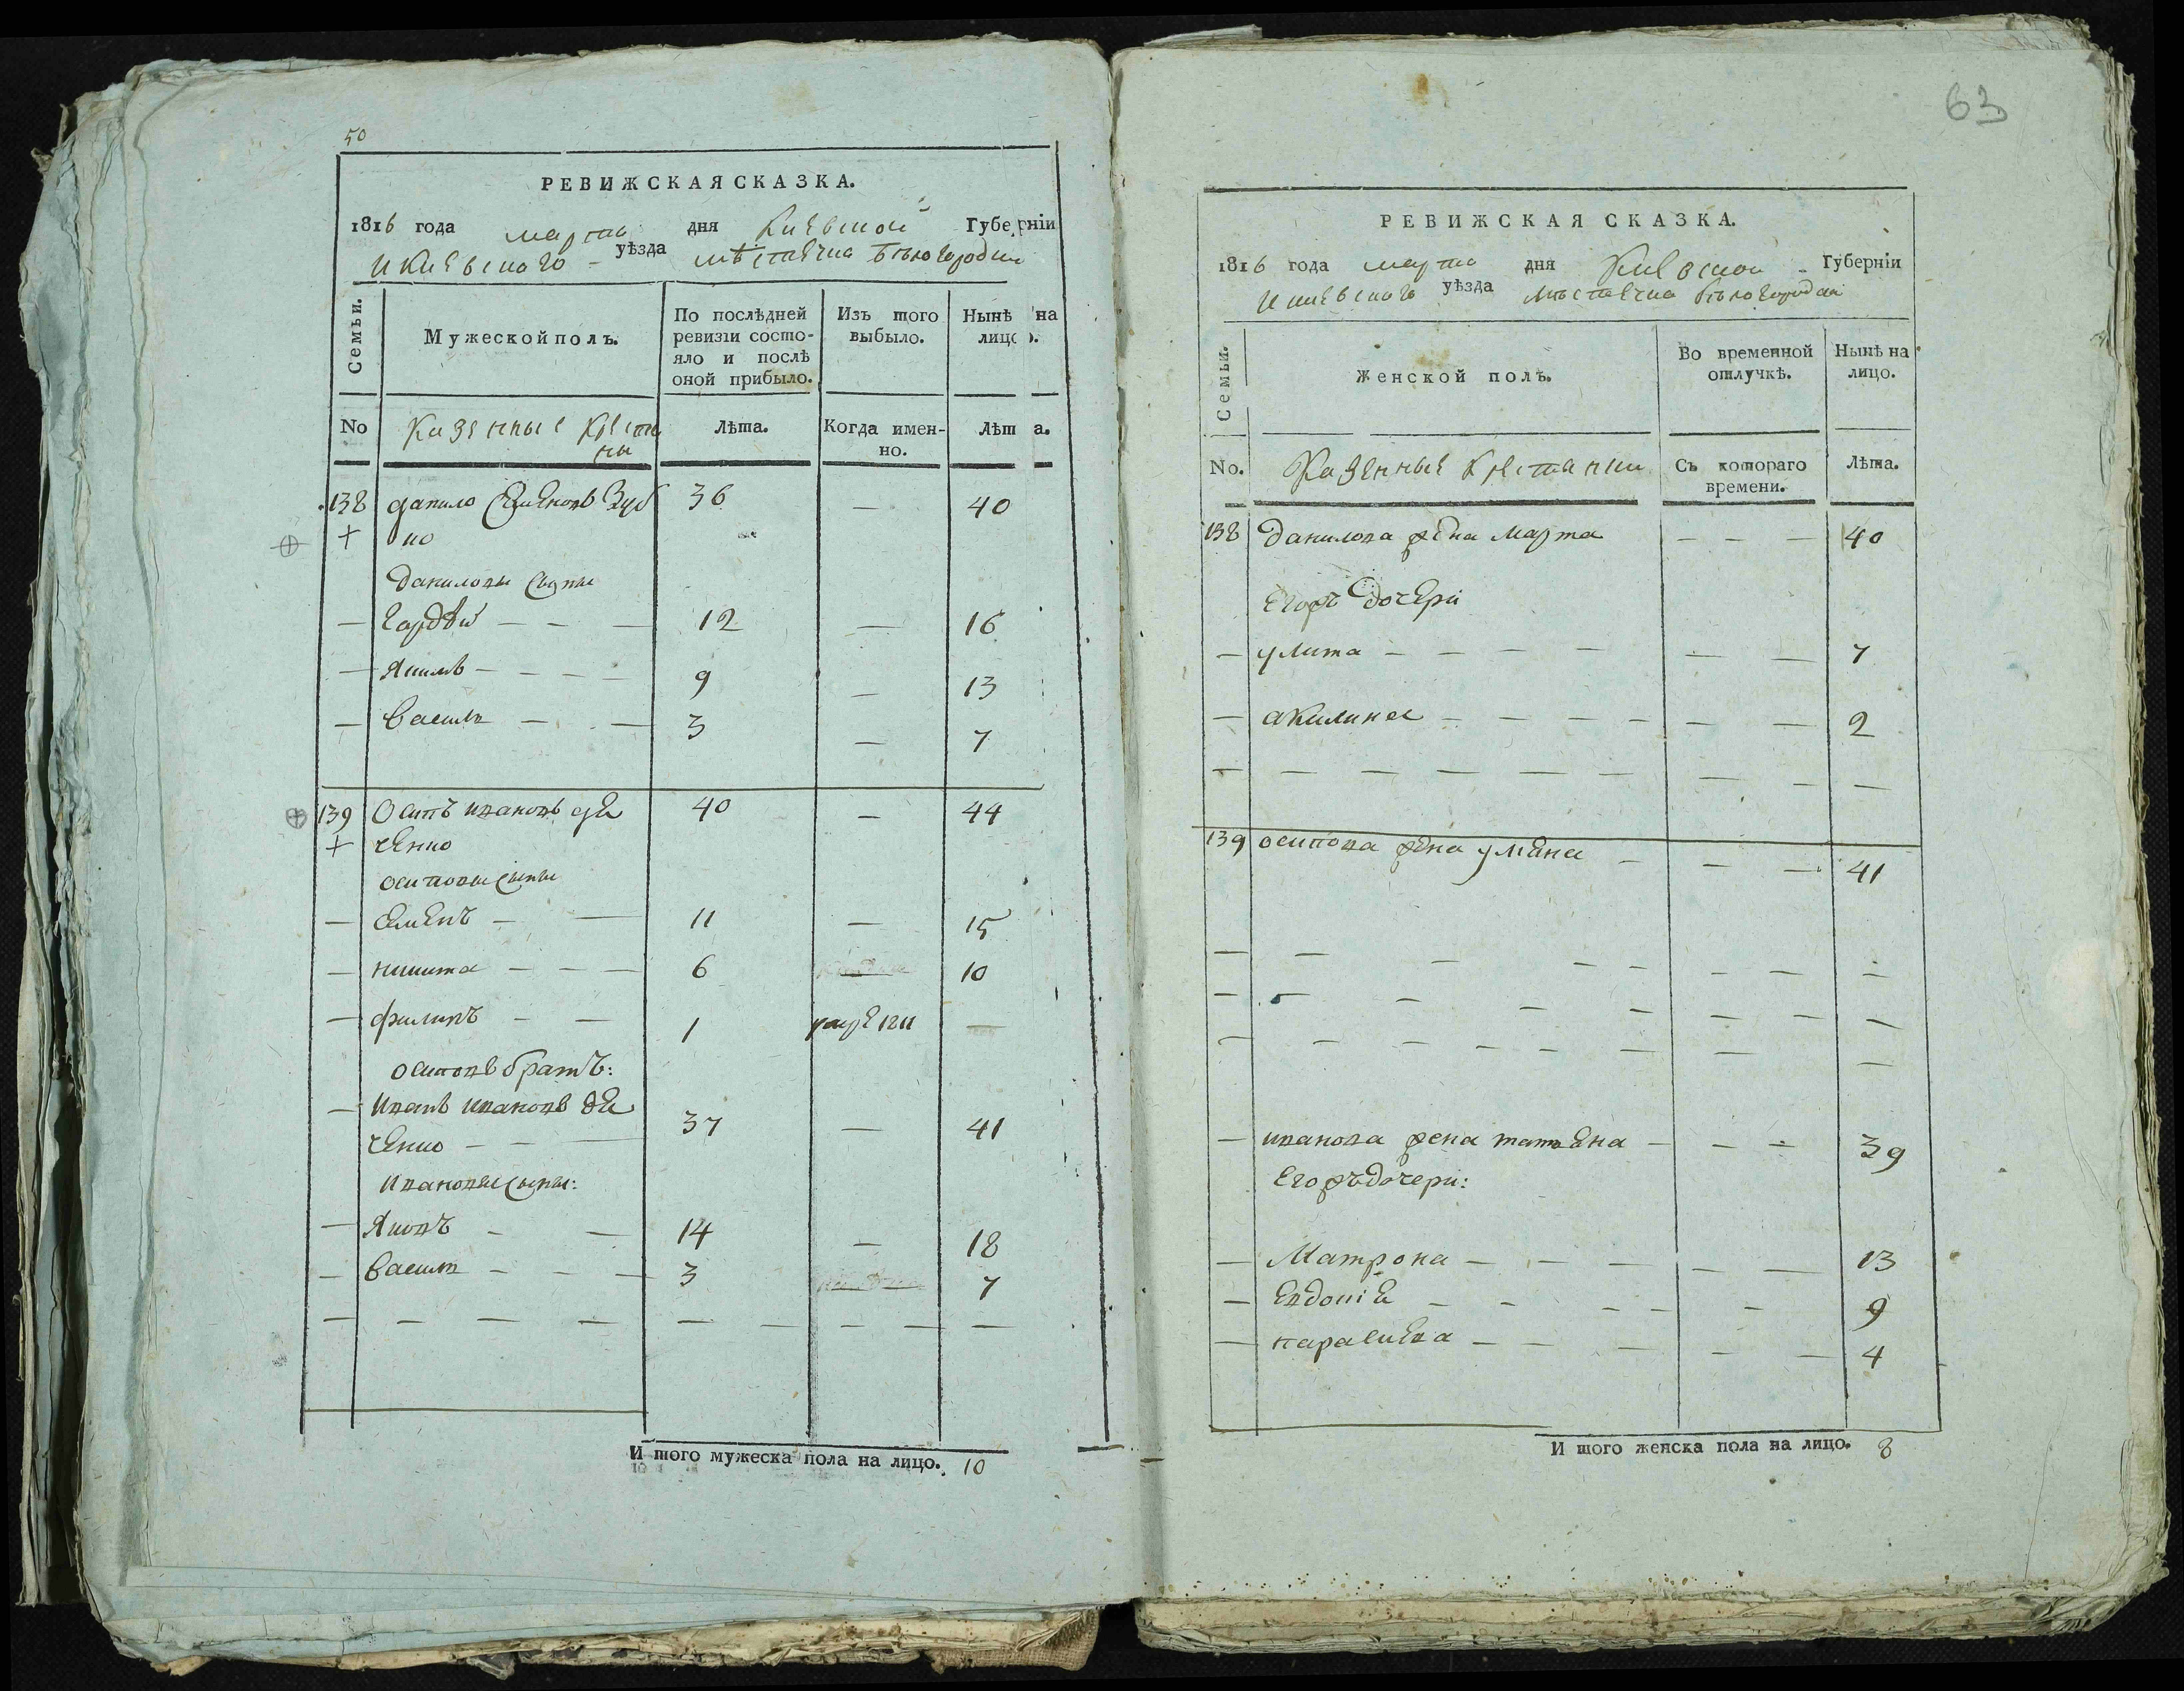 50
РЕВИЖСКАЯ СКАЗКА.
1816 года марта дня Киевской Губерніи
и Киевского уѣзда мѣстечка Бѣлогородки
Семьи.
Мужеской полъ.
По послѣдней ревизіи состо-
яло и послѣ
оной прибыло.
Изъ того
выбыло.
Нынѣ на
лицо.
No
Казенные кресть
ны
Лѣта.
Когда имен-
но.
Лѣта.
138 данило Семеновъ Зуб 36 — 40
ко
Даниловы сыны
— Гордѣй — — — 12 — 16
— Якимъ — — — — 9 — 13
— Василь — — 3 — 7
139 Осипъ Ивановъ де 40 — 44
ченко
осиповы сыны
— Семенъ — — 11 — 15
— никита — — — 6 — 10
— филипъ — — 1 умре 1811 —
осиповъ братъ:
— Иванъ Ивановъ де 37 — 41
ченко — — —
Ивановы сыны:
— Яковъ — — 14 — 18
— Василь — — — 3 — 7
— — — — — — — — —
И того мужеска пола на лицо. 10
63
РЕВИЖСКАЯ СКАЗКА.
1816 года марта дня Киевской Губерніи
и киевского уѣзда мѣстечка бѣлогородки
Семьи.
Женской полъ.
Во временной
отлучкѣ.
Нынѣ на
лицо.
No.
Казенные крестьянки
Съ котораго
времени.
Лѣта.
138 Данилова жена Марта — — — 40
Егожъ дочери
— улита — — — — — — 7
— акилина — — — — — — 2
— — — — — — — — —
139 осипова жена ульяна — — — 41
— — — — — — — —
— — — — — — — —
— — — — — — — — —
— иванова жена татьяна — — — 39
Егожъ дочери:
— Матрона — — — — — 13
— Евдокія — — — — — 9
— парасковья — — — — — 4
И того женска пола на лицо. 8